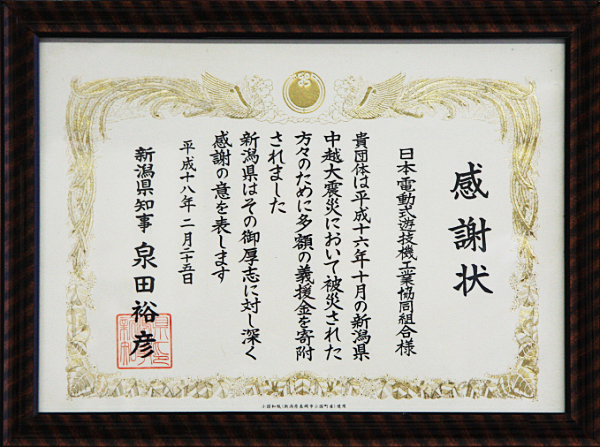 感謝状
日本電動式遊技機工業協同組合様
貴団体は平成十六年十月の新潟県
中越大震災において被災された
方々のために多額の義援金を寄附
されました
新潟県はその御厚志に対し深く
感謝の意を表します
平成十八年二月二十五日
新潟県知事 泉田裕彦
小国和紙(新潟県長岡市小国町産)使用